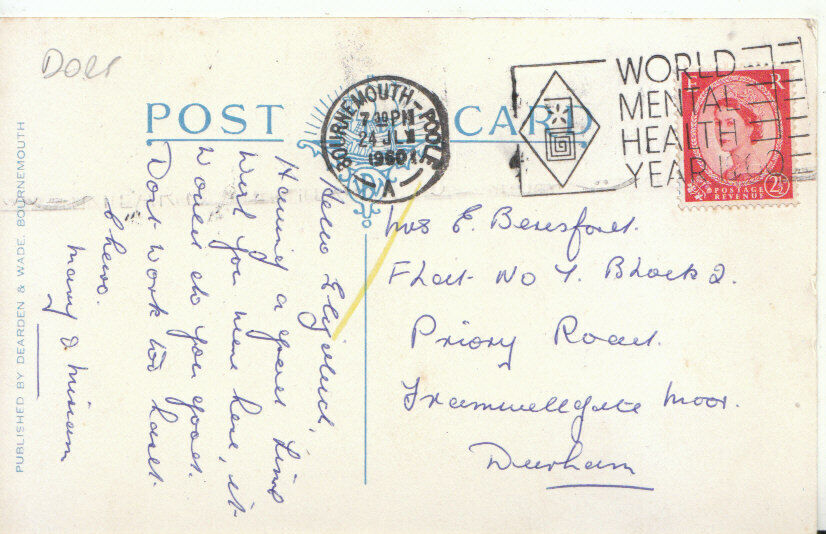 Dors
POST CARD
BOURNEMOUTH-POOLE
7 30 PM
24 JLY
1960
A
WORLD
MENTAL
HEALTH
YEAR
E R
POSTAGE
REVENUE
2½D
Hello Elizabeth,
Having a good time
Wish you were here, it
Would do you good.
Dont work too hard.
Cheero.
Mary & Miriam
Mrs E. Beresford.
Flat No 7. Block 2.
Priory Road.
Framwellgate Moor.
Durham
PUBLISHED BY DEARDEN & WADE, BOURNEMOUTH